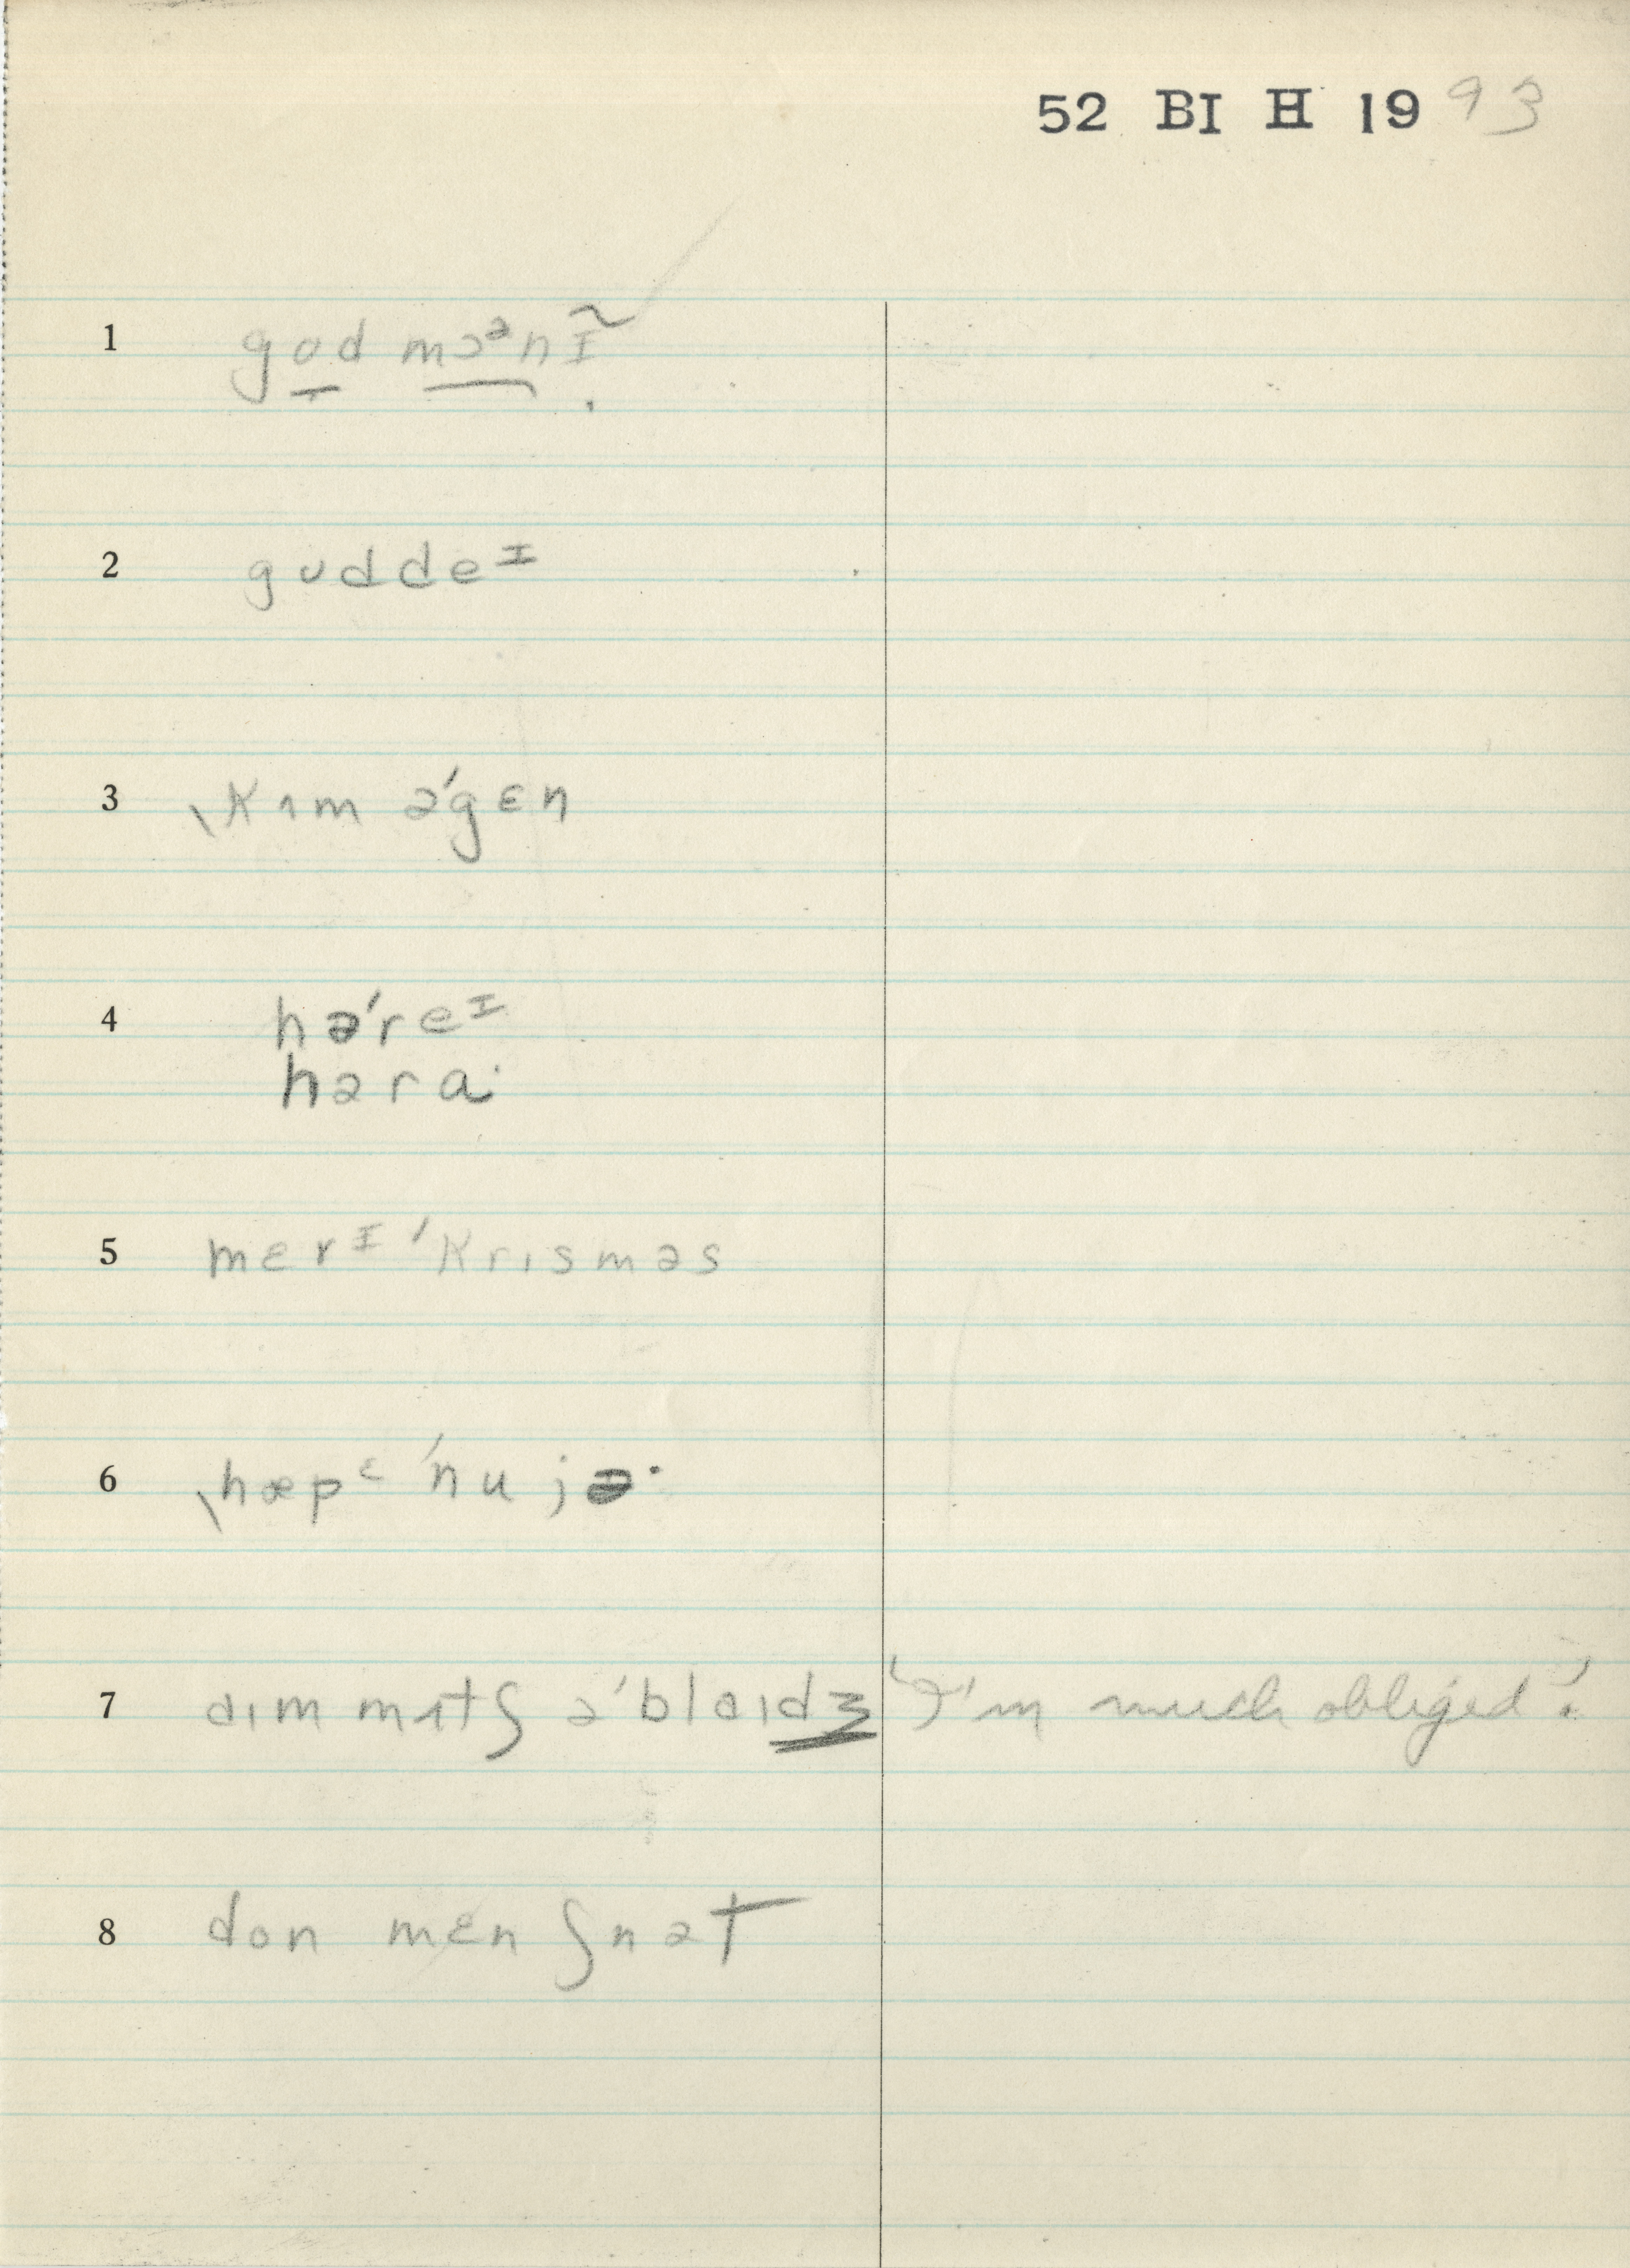 52 BI H 19 93
1 gʊd mɔᵊnɪ̃
2 gʊddeᶦ
3 ˎkʌm əˈgɛn
4 həˈreᶦ
həraˑ
5 mɛrᶦ ˈkrɪsməs
6 ˎhæpᵋ ˈnu jəˑ
7 aɪm mʌtʃ əˈblaɪdʒ "I'm much obliged".
8 don mɛnʃn ət